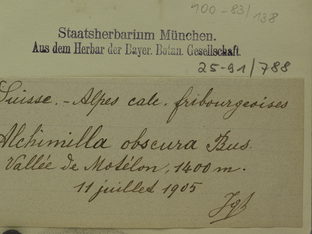 100-83/138
Staatsherbarium München.
Aus dem Herbar der Bayer. Botan. Gesellschaft.
25-91/788
Suisse. - Alpes calc. fribourgeoises
Alchimilla obscura Bus.
Vallée de Motélon, 1400 m.
11 juillet 1905